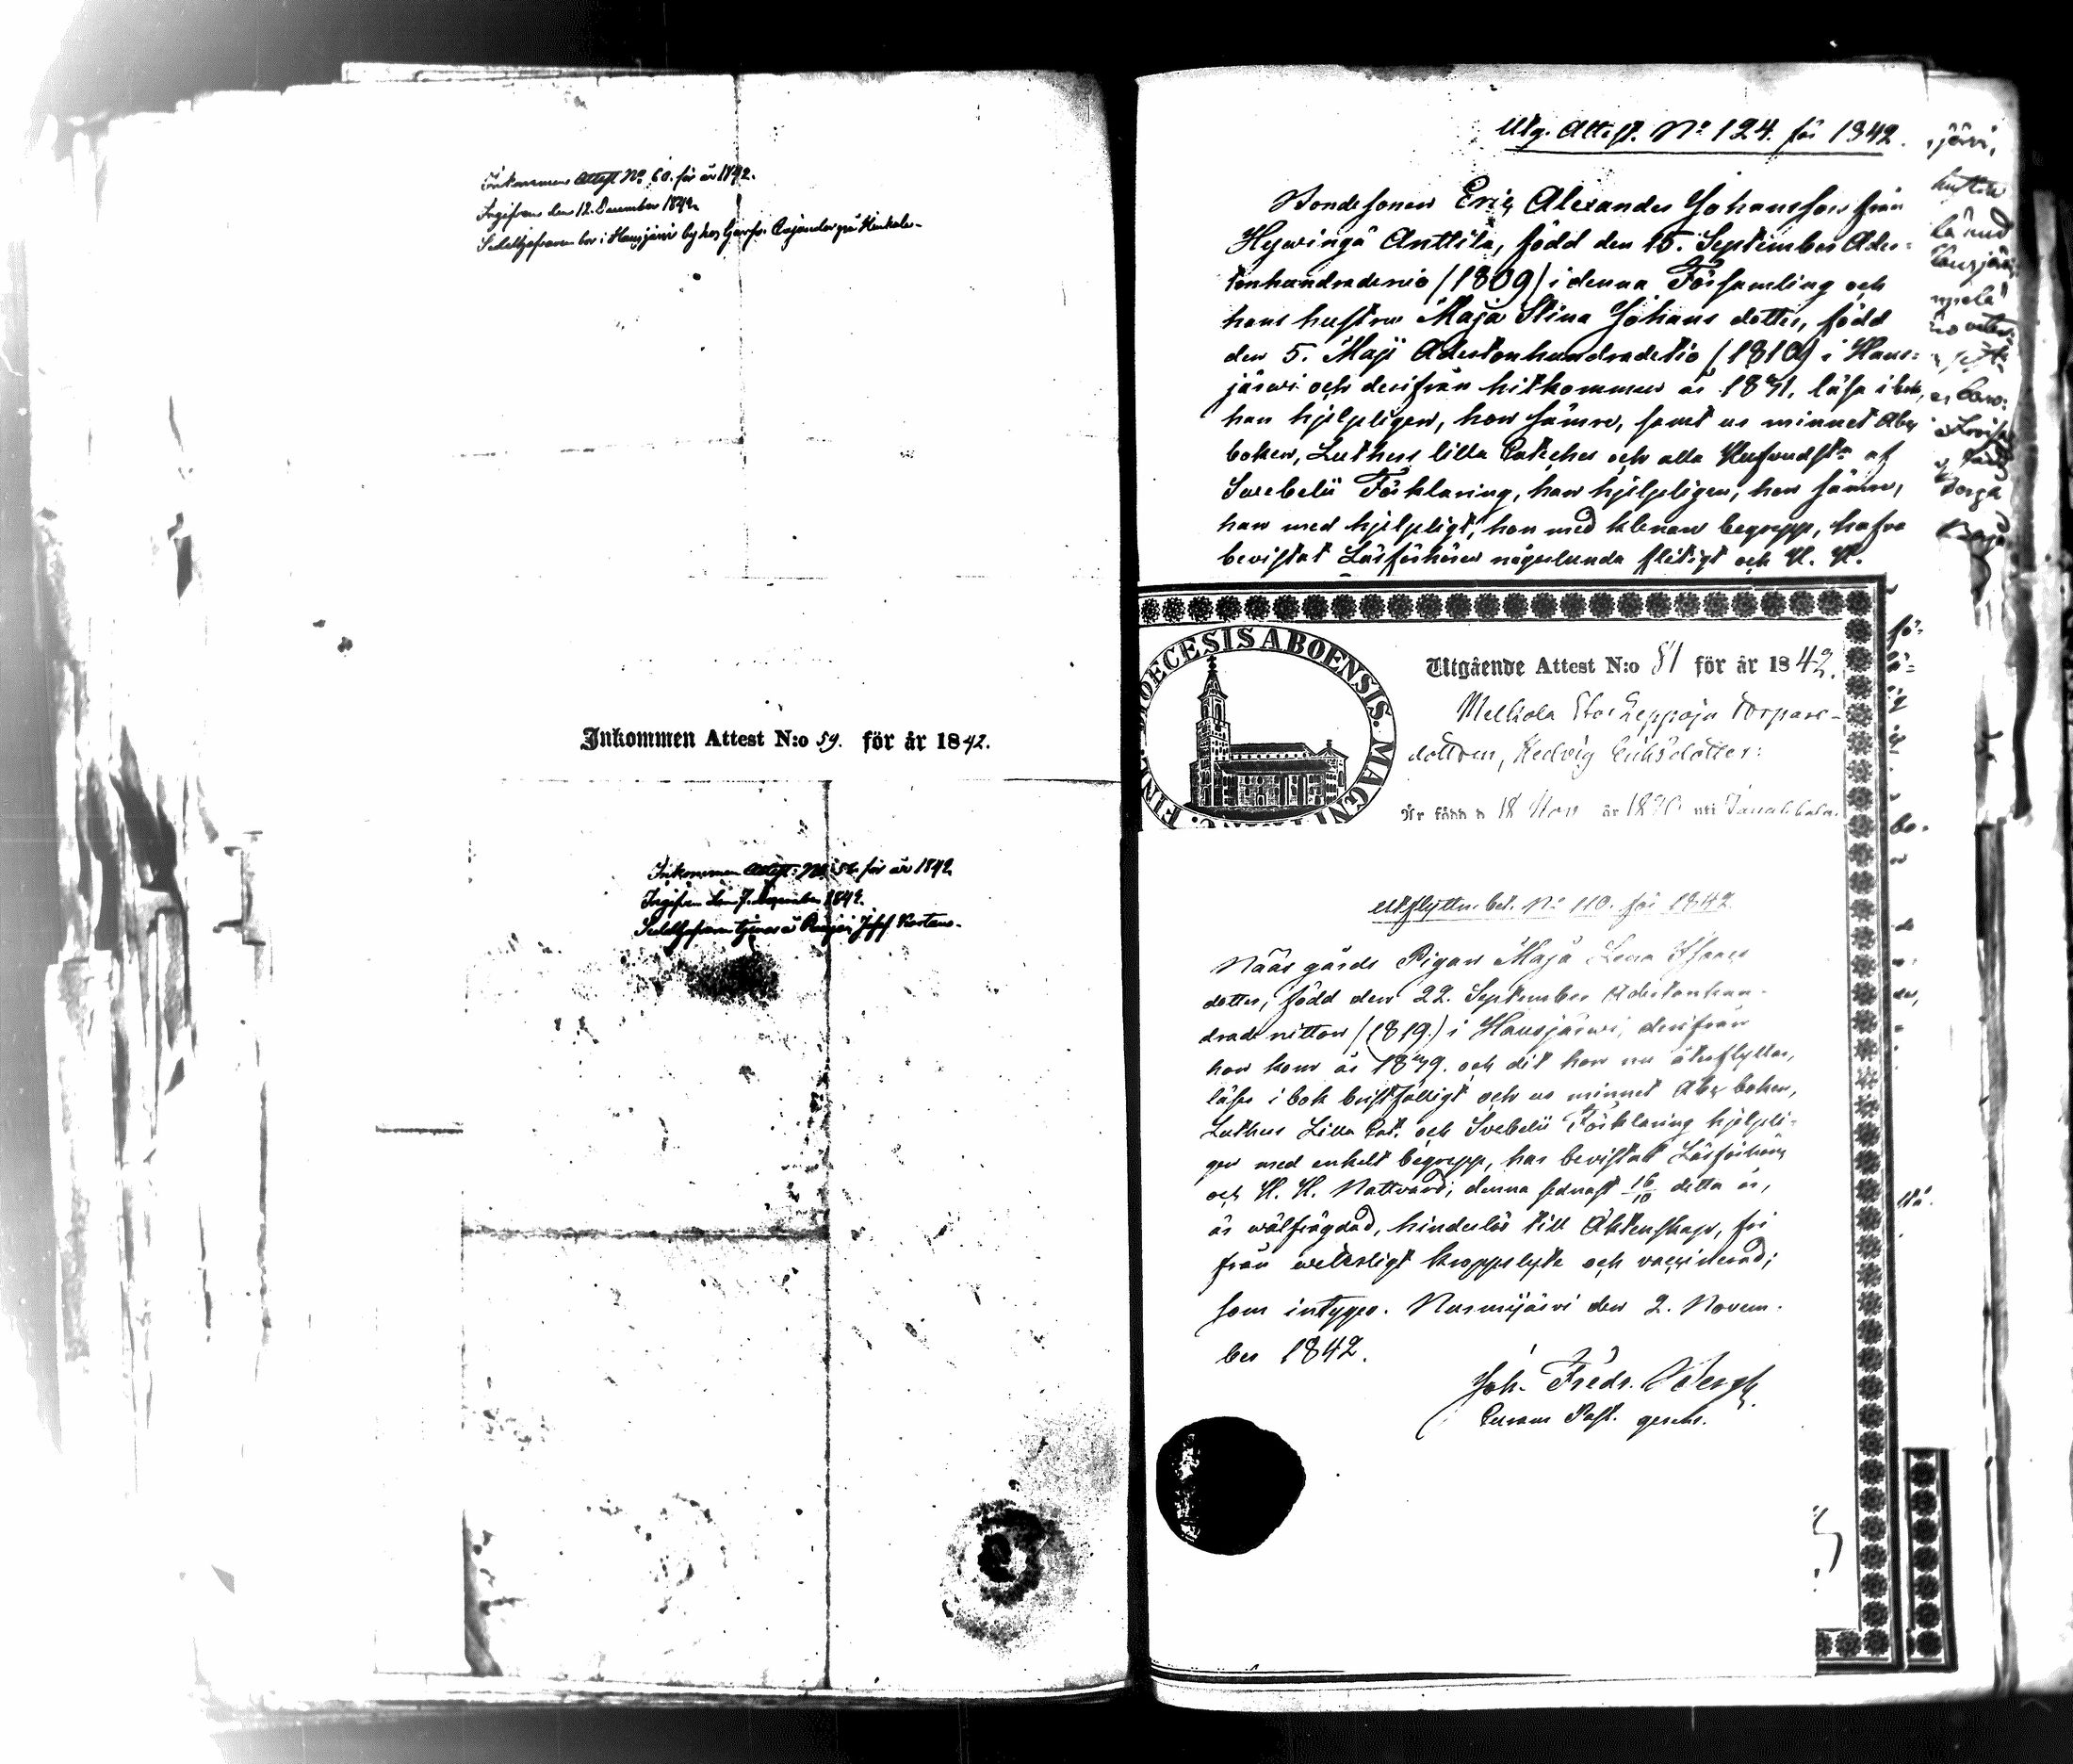 Inkommen Attest No 60. för år 1842.
Ingifven den 12. December 1842.
i Hausjärvi by hos
Inkommen Attest N:o 59. för år 1842.
Inkommen Attest No 58. för år 1842
Ingifven den 7. December 1842.
Josef
Utg. Attest. No 124. för 1842.
Bondesonen Eric Alexander Johansson från
Hywingä Anttila, född den 15. September Ader-
tonhundradenio (1809) i denna Församling och
hans hustru Maja Stina Johans dotter, född
den 5. Maji Adertonhundradetio (1810) i Haus-
järwi och derifrån hitkommen år 1841, läsa i bok,
han hjelpligen, hon sämre, samt ur minnet Abc
boken, Luthers lilla Catches och alla Hufvudst. af
Svebelii Förklaring, han hjelpligen, hon sämre,
han med hjelpligt, hon med klenare begrepp, hafva
bevistat Läsförhören någorlunda flitigt och H. H.
DIOECESIS ABOENSIS. MAGNI
Utgående Attest N:o 81 för år 1842.
Torpare-
dottren, Hedvig Eriksdotter:
Är född d 18 Nov år uti Janakkala
Utflyttn. bet. No 110. för 1842.
Nääs gårds Pigan Maja Lena Isaacs
dotter, född den 22. September Adertonhun-
dradenitton (1819.) i Hausjärwi, derifrån
hon kom år och dit hon nu återflyttar,
läser i bok bristfälligt och ur minnet Abc boken,
Luthers Lilla Cat. och Svebelii Förklaring hjelpli-
gen med enkelt begrepp, har bevistat Läsförhör
och H. H. Nattvard, denna sednast 16/10 detta år,
är wälfrägdad, hinderlös till Äktenskap, fri
från weterligt kroppslyte och vaccinerad;
som intygar. Nurmijärvi den 2. Novem-
ber 1842.
Joh. Fredr. Bergh
Curam Past. gerens.